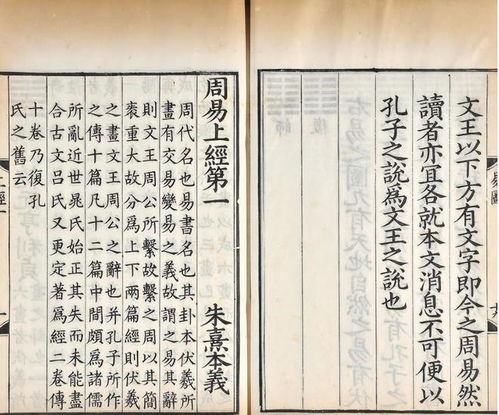 易圖
文王以下方有文字即今之周易然
讀者亦宜各就本文消息不可便以
孔子之說為文王之說也
周易上經第一
朱熹本義
周代名也易書名也其卦本伏羲所
畫有交易變易之義故謂之易其辭
則文王周公所繫故繫之周以其簡
袠重大故分為上下兩篇經則伏羲
之畫文王周公之辭也并孔子所作
之傳十篇凡十二篇中間頗為諸儒
所亂近世晁氏始正其失而未能盡
合古文呂氏又更定著為經二卷傳
十卷乃復孔
氏之舊云
上經一